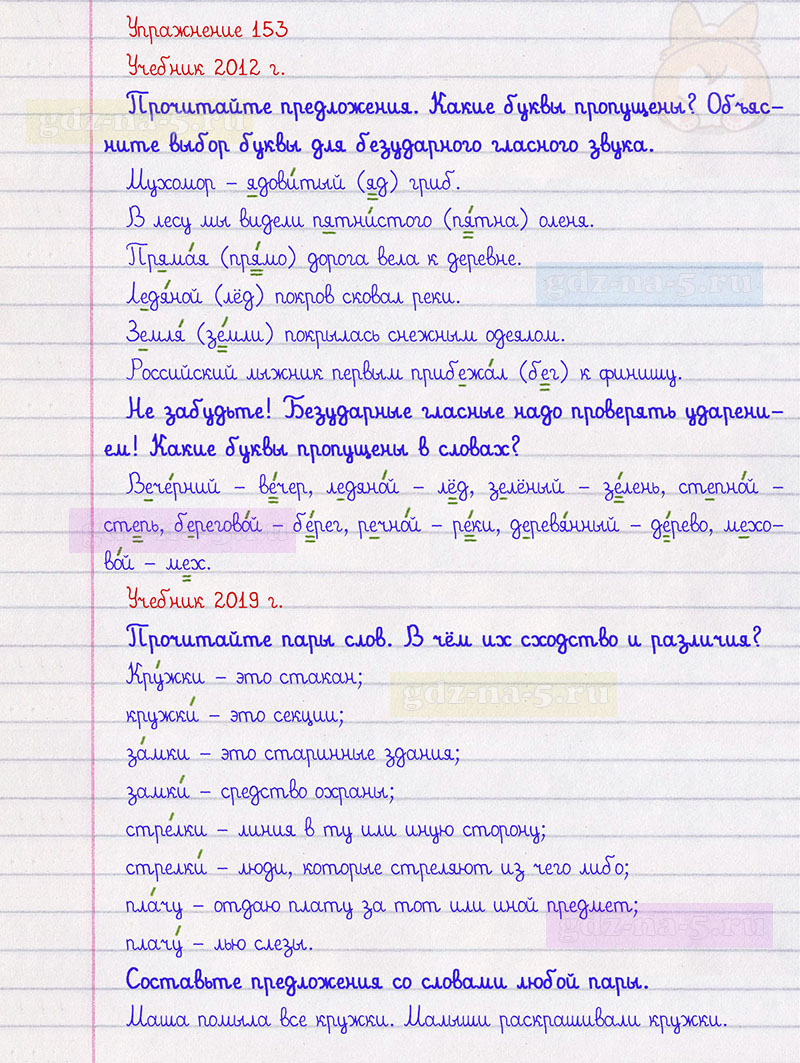 Упражнение 153
Учебник 2012 г.
Прочитайте предложения. Какие буквы пропущены? Объяс-
gdz-na-5.ru
ните выбор буквы для безударного гласного звука.
Мухомор – ядови́тый (яд) гриб.
В лесу мы видели пятни́стого (пя́тна) оленя.
Пряма́я (пря́мо) дорога вела к деревне.
gdz-na-5.ru
Ледяно́й (лёд) покров сковал реки.
Земля́ (зе́мли) покрылась снежным одеялом.
Российский лыжник первым прибежа́л (бег) к финишу.
Не забудьте! Безударные гласные надо проверять ударени-
ем! Какие буквы пропущены в словах?
Вече́рний – ве́чер, ледяно́й – лёд, зелёный – зе́лень, степно́й –
степь, берегово́й – бе́рег, речно́й – ре́ки, деревя́нный – де́рево, мехо-
gdz-na-5.ru
во́й – мех.
Учебник 2019 г.
Прочитайте пары слов. В чём их сходство и различия?
Кру́жки – это стакан;
gdz-na-5.ru
кружки́ – это секции;
за́мки – это старинные здания;
замки́ – средство охраны;
стре́лки – линия в ту или иную сторону;
стрелки́ – люди, которые стреляют из чего либо;
пла́чу – отдаю плату за тот или иной предмет;
gdz-na-5.ru
плачу́ – лью слезы.
Составьте предложения со словами любой пары.
Маша помыла все кружки. Малыши раскрашивали кружки.